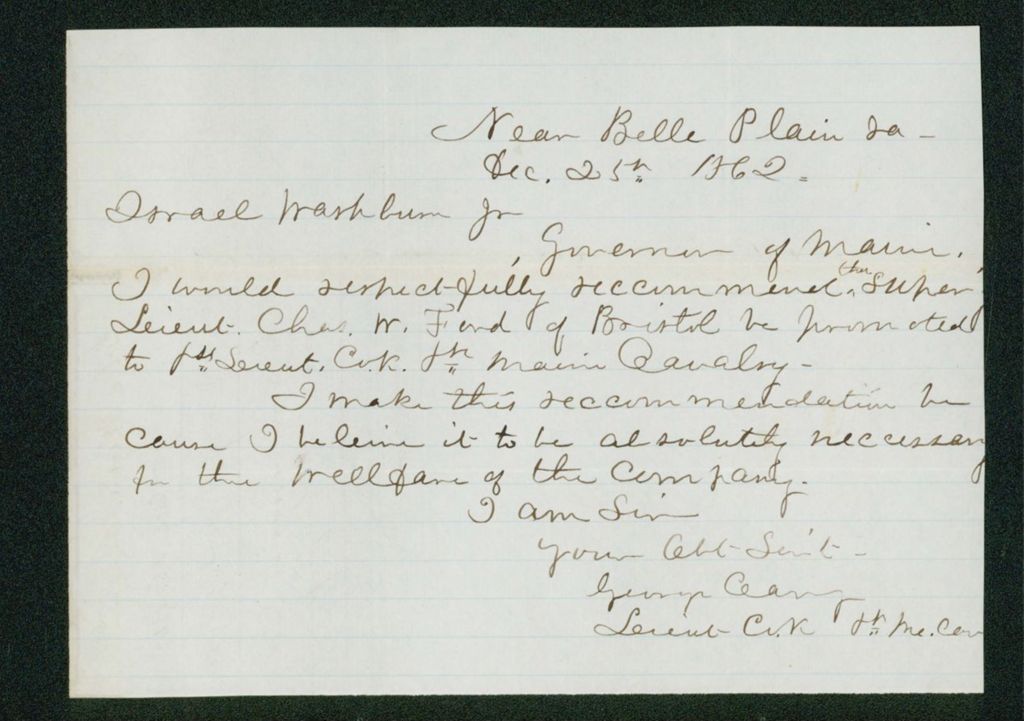 Near Belle Plain Va -
Dec. 25th 1862.
Israel Washburn Jr
Governor of Maine.
I would respectfully reccommend that Super
Leieut. Chas. W. Ford of Bristol be promoted
to 1st Leieut. Co. K. 1st Maine Cavalry -
I make this reccommendation be
cause I beleive it to be absolutely neccessary
for the wellfare of the company.
I am Sir
your Obt Servt -
George Cary
Leieut Co. K 1st Me. Cav